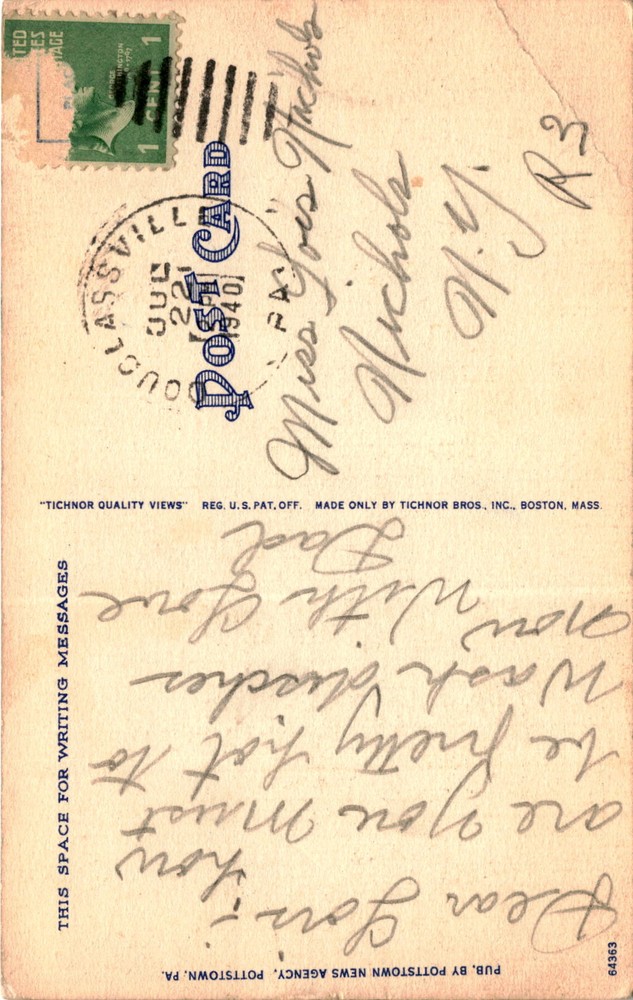 THIS SPACE FOR WRITING MESSAGES
POST CARD
DOUGLASSVILLE
22
PM
1940
PA.
GEORGE
WASHINGTON
1 CENT 1
Miss Lois Nichols
Nichols
N.Y.
R 3
"TICHNOR QUALITY VIEWS" REG. U.S. PAT. OFF. MADE ONLY BY TICHNOR BROS., INC., BOSTON, MASS.
Dear Lois-
how
are you must
be pretty hot to
Wash discher
now With Love
Dad
PUB. BY POTTSTOWN NEWS AGENCY, POTTSTOWN, PA.
64363